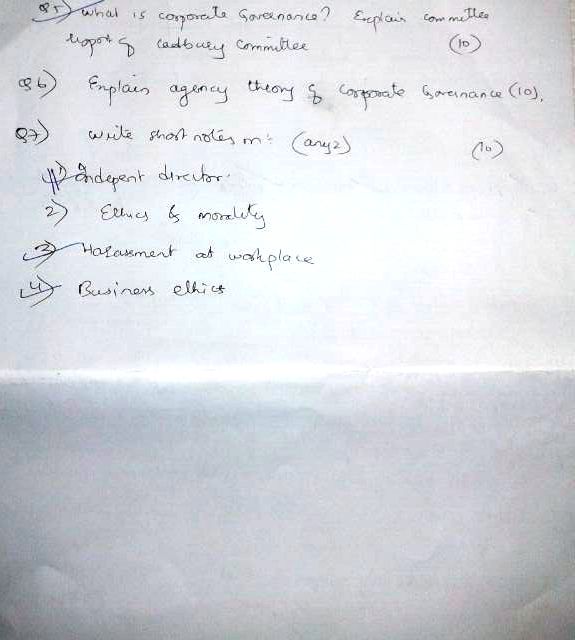 Q5) what is corporate Governance? Explain committee
report of cadbury committee (10)
Q6) Explain agency theory of corporate Governance (10).
Q7) write short notes on: (any 2) (10)
1) Indepent director.
2) Ethics & morality
3) Harassment at workplace
4) Business ethics